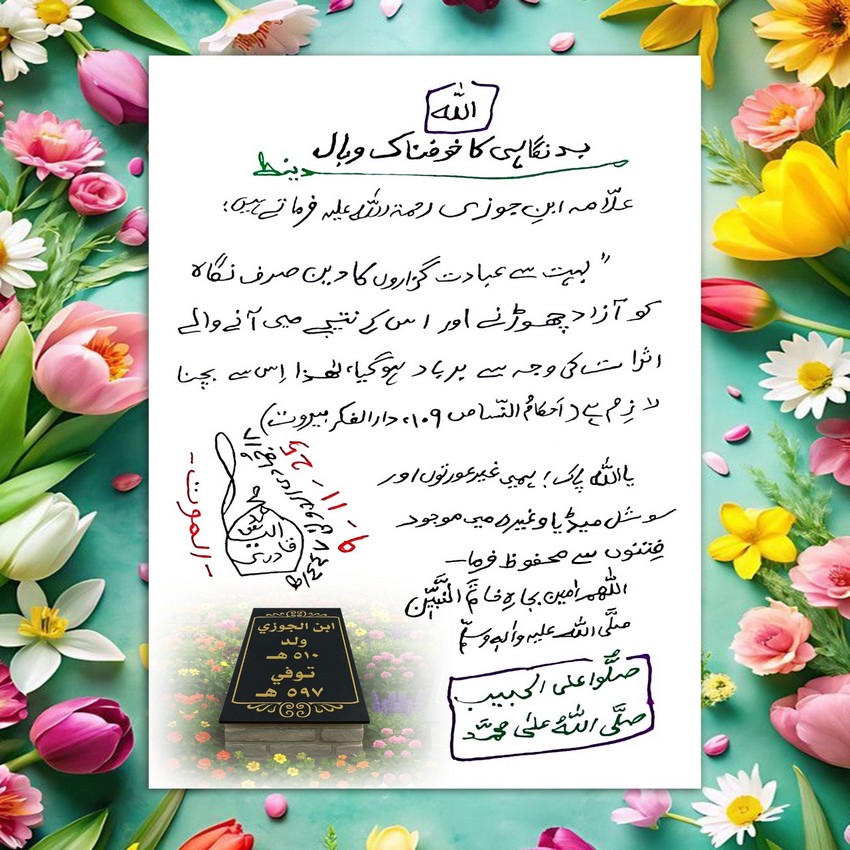 اللہ
بدنگاہی کا خوفناک وبال
علّامہ ابنِ جوزی رحمۃ اللہ علیہ فرماتے ہیں:
"بہت سے عبادت گزاروں کا دین صرف نگاہ
کو آزاد چھوڑنے اور اس کے نتیجے میں آنے والے
اثرات کی وجہ سے برباد ہوگیا، لھٰذا اِس سے بچنا
لازِم ہے (اَحکامُ النّسا ص ۱۰۹، دارالفکر بیروت)
یا اللہ پاک! ہمیں غیر عورتوں اور
سوشل میڈیا وغیرہ میں موجود
فِتنوں سے محفوظ فرما۔
اللّٰھم امین بجاہِ خاتَمِ النَّبِیّٖن
صلَّی اللہ علیہ واٰلہٖ وسلّم
صلُّوا علی الحبیب
صلَّی اللہُ علٰی محمَّد
-الموت-
ابن الجوزي
ولد
٥١٠ هـ
توفي
٥٩٧ هـ